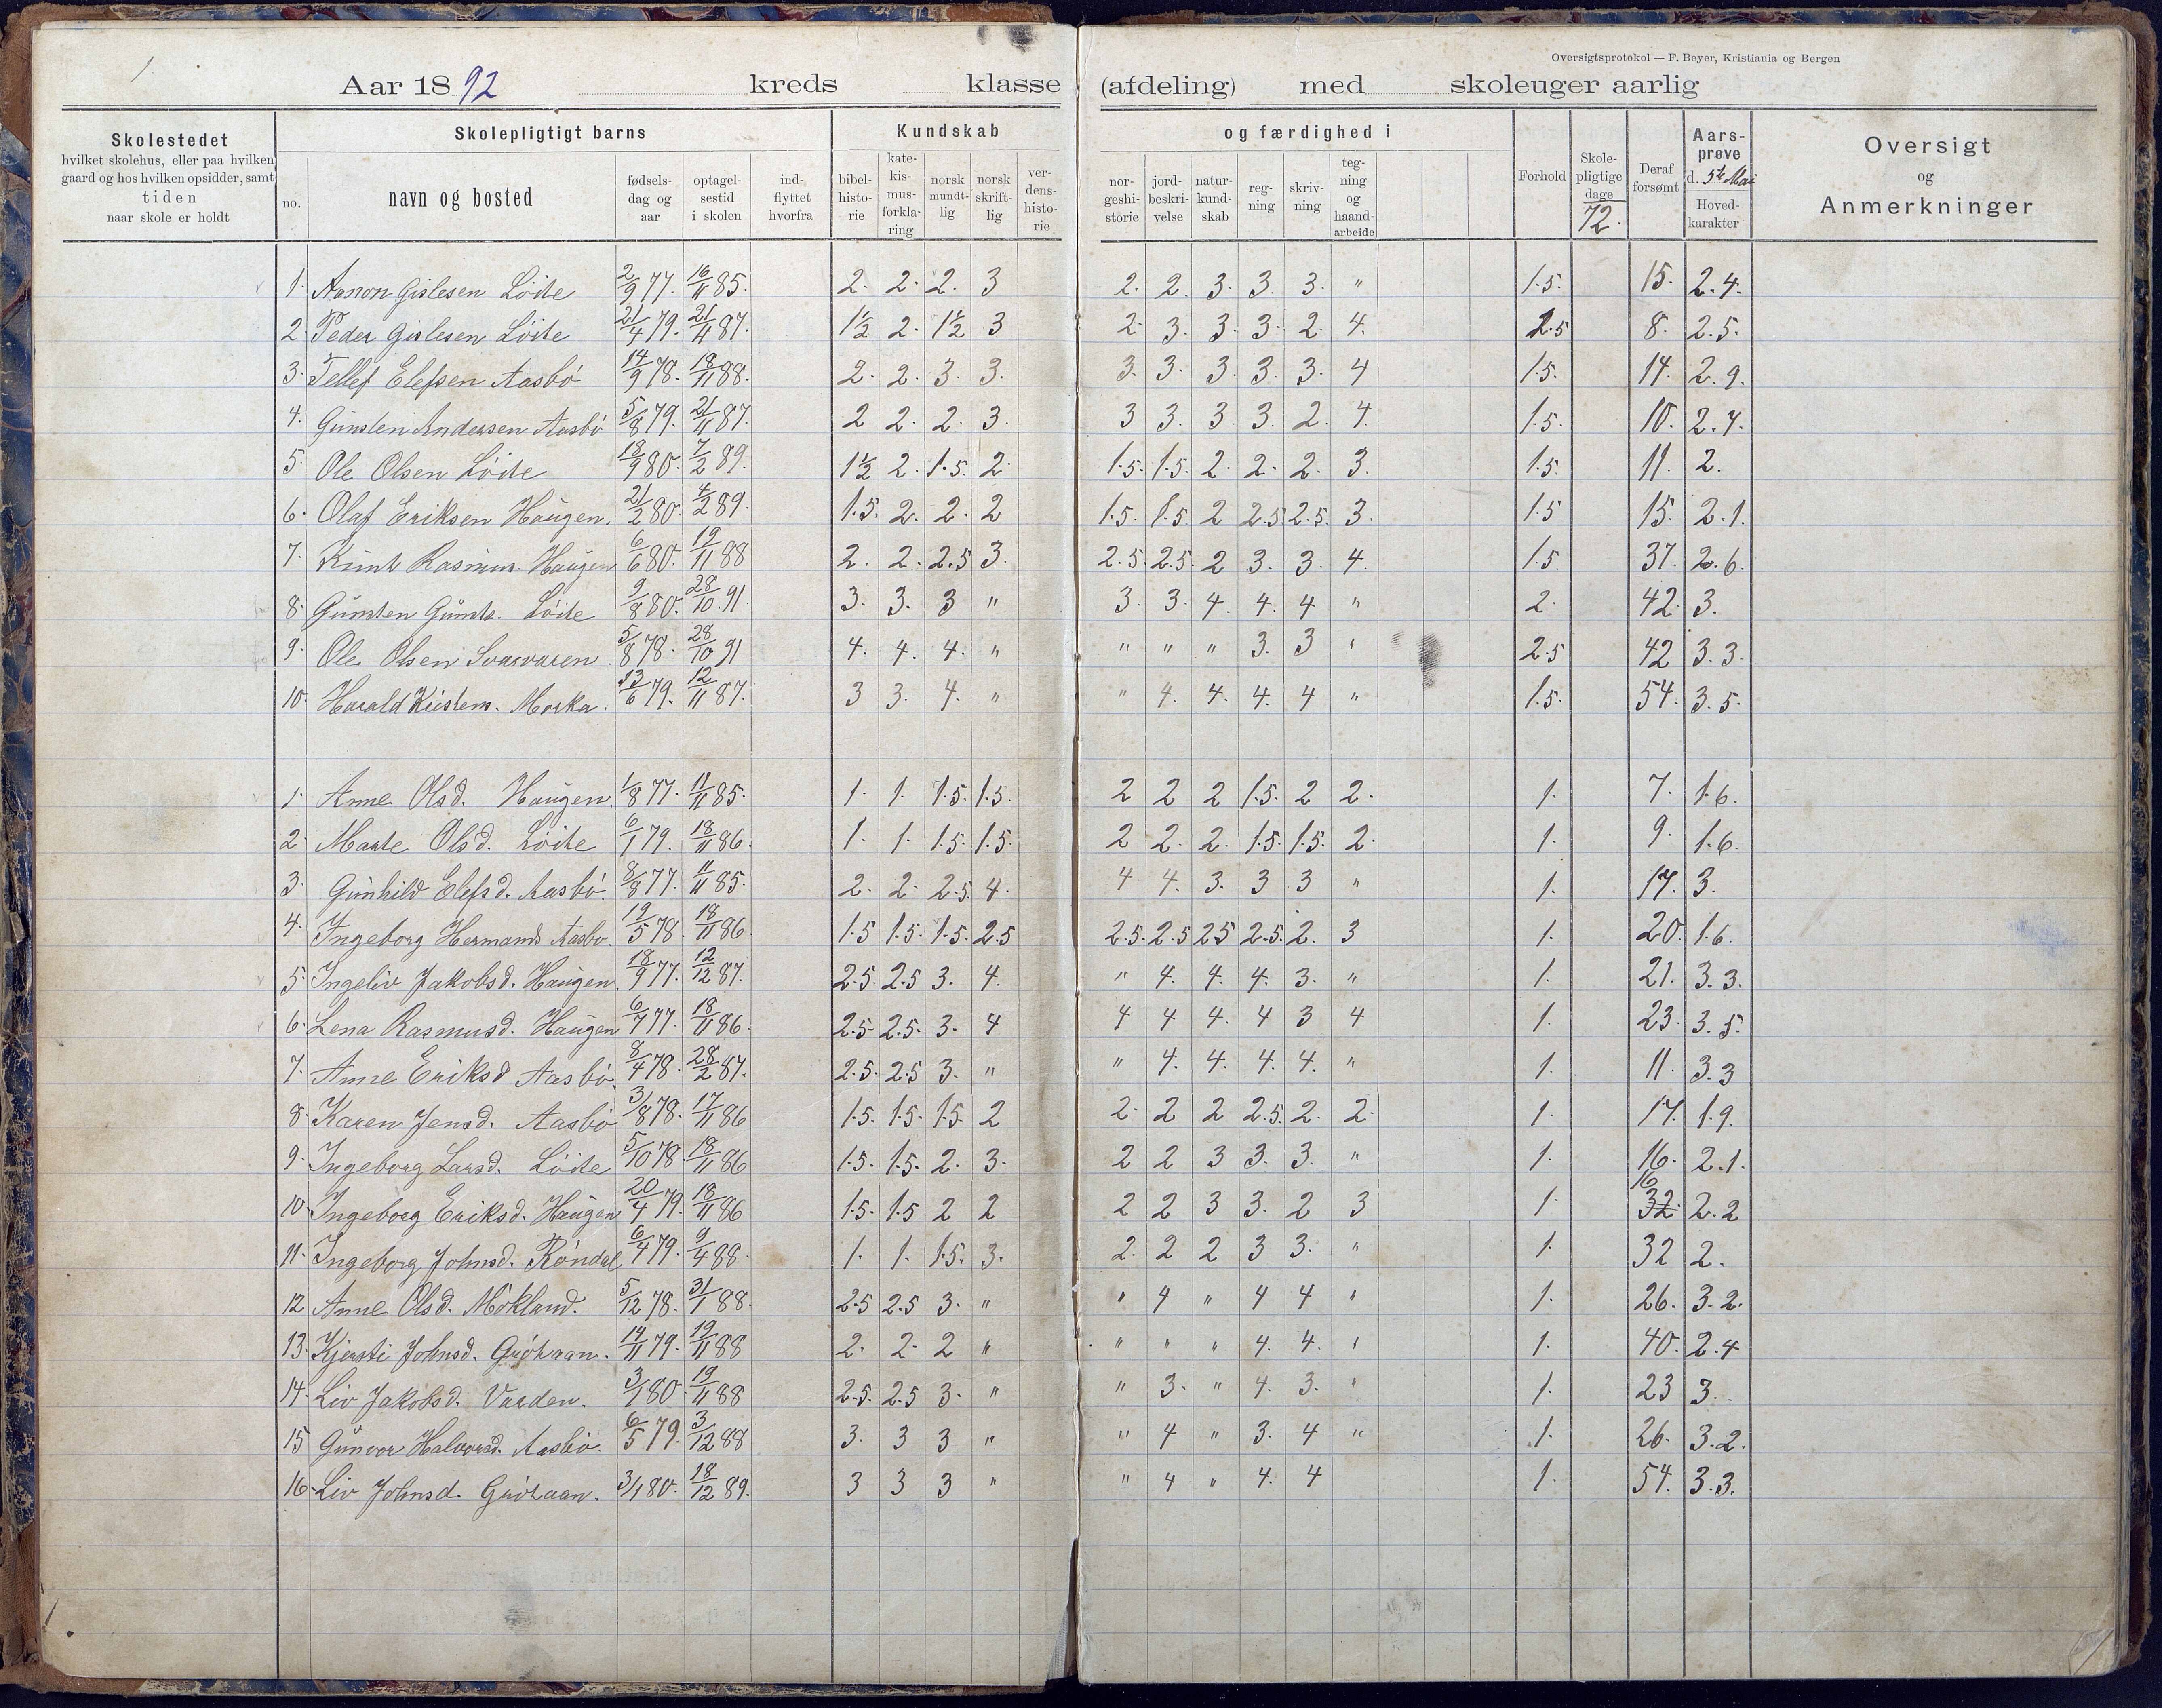 1
Oversigtsprotokol — F. Beyer, Kristiania og Bergen
Aar 1892 kreds klasse (afdeling) med skoleuger aarlig
Skolestedet hvilket skolehus, eller paa hvilken gaard og hos hvilken opsidder, samt tiden naar skole er holdt
Skolepligtigt barns
no. navn og bosted fødsels-dag og aar optagel-sestid i skolen ind-flyttet hvorfra
Kundskab og færdighed i
bibel-histo-rie kate-kis-mus-forkla-ring norsk mundt-lig norsk skrift-lig ver-dens-histo-rie nor-geshi-storie jord-beskri-velse natur-kund-skab reg-ning skriv-ning teg-ning og haand-arbeide
Forhold Skole-pligtige dage 72. Deraf forsømt Aars-prøve d. 5te Mai Hoved-karakter
Oversigt og Anmerkninger
1. Aanon Gislesen Löite 2/9 77. 16/11 85. 2. 2. 2. 3 2. 2. 3. 3. 3. " 1.5. 15. 2.4.
2. Peder Gislesen Löite 21/4 79. 21/11 87. 1½ 2. 1½ 3 2. 3. 3. 3. 2. 4. 2.5 8. 2.5.
3. Tellef Elefsen Aasbö 14/9 78. 18/11 88. 2. 2. 3. 3. 3. 3. 3. 3. 3. 4 1.5. 14. 2.9.
4. Gunsten Andersen Aasbö 5/8 79. 21/11 87. 2 2. 2. 3. 3 3. 3. 3. 2. 4. 1.5. 10. 2.7.
5. Ole Olsen Löite 18/9 80. 7/2 89. 1½ 2. 1.5. 2. 1.5. 1.5. 2. 2. 2. 3. 1.5. 11. 2.
6. Olaf Eriksen Haugen. 21/2 80. 4/2 89. 1.5. 2. 2. 2 1.5. 1.5. 2 2.5. 2.5. 3. 1.5 15. 2.1.
7. Knut Rasmus. Haugen 6/6 80. 19/11 88 2. 2. 2.5 3. 2.5. 2.5. 2 3. 3. 4. 1.5. 37. 2.6.
8. Gunsten Gunste. Löite 9/8 80. 28/10 91. 3. 3. 3 " 3. 3. 4. 4. 4 " 2. 42. 3.
9. Ole Olsen Svarvaren. 5/8 78. 28/10 91 4. 4. 4. " " " " 3. 3 " 2.5 42 3.3.
10. Harald Kristens. Morka. 13/6 79. 12/11 87. 3 3. 4. " " 4. 4. 4. 4 " 1.5. 54. 3.5.
1. Anne Olsd. Haugen. 1/8 77. 11/11 85. 1. 1. 1.5. 1.5. 2 2 2 1.5. 2 2. 1. 7. 1.6.
2. Marte Olsd. Löite 6/1 79. 18/11 86. 1. 1. 1.5. 1.5. 2 2. 2. 1.5. 1.5. 2. 1. 9. 1.6.
3. Gunhild Elefsd. Aasbö. 8/8 77. 11/11 85. 2. 2. 2.5. 4. 4 4. 3. 3 3 " 1. 17. 3.
4. Ingeborg Hermands Aasbo. 19/5 78. 18/11 86. 1.5 1.5. 1.5. 2.5 2.5. 2.5 2.5 2.5. 2. 3 1. 20. 1.6.
5. Ingeliv Jakobsd. Haugen. 18/9 77. 12/12 87. 2.5 2.5 3. 4. " 4. 4. 4. 3. " 1. 21. 3.3.
6. Lena Rasmusd. Haugen 6/7 77. 18/11 86. 2.5 2.5. 3. 4 4 4 4. 4 3 4 1. 23. 3.5.
7. Anne Eriksd Aasbö. 8/4 78. 28/2 87. 2.5. 2.5 3. " " 4. 4. 4. 4. " 1. 11. 3.3
8. Karen Jensd. Aasbö 3/8 78. 17/11 86 1.5. 1.5. 1.5. 2 2. 2 2 2.5. 2. 2. 1. 17. 1.9.
9. Ingeborg Larsd. Löite 5/10 78. 18/11 86 1.5. 1.5. 2. 3. 2 2 3 3. 3. " 1. 16. 2.1.
10. Ingeborg Eriksd. Haugen 20/4 79. 18/11 86 1.5. 1.5 2 2 2 2 3 3. 2 3 1. 16 32 2.2
11. Ingeborg Johnsd. Röndal 6/4 79. 9/4 88. 1. 1. 1.5. 3. 2. 2 2 3 3. " 1. 32 2.
12 Anne Olsd. Mökland. 5/12 78. 31/1 88. 2.5 2.5 3. " " 4 " 4 4 " 1. 26. 3.2.
13. Kjersti Johnsd. Gröhaan. 14/11 79. 19/11 88 2. 2. 2 " " " " 4. 4. " 1. 40. 2.4
14. Liv Jakobsd. Varden. 3/1 80. 19/11 88 2.5. 2.5 3. " " 3. " 4. 3. " 1. 23 3.
15 Gunvor Halvorsd. Aasbö. 6/5 79. 3/12 88 3. 3 3 " " 4 " 3. 4 " 1. 26. 3.2.
16. Liv Johnsd. Gröhaan. 3/1 80. 18/12 89. 3 3 3 " " 4 " 4. 4 1. 54. 3.3.